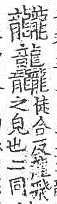 龖龘
徒合反龍飛
之皃也二同